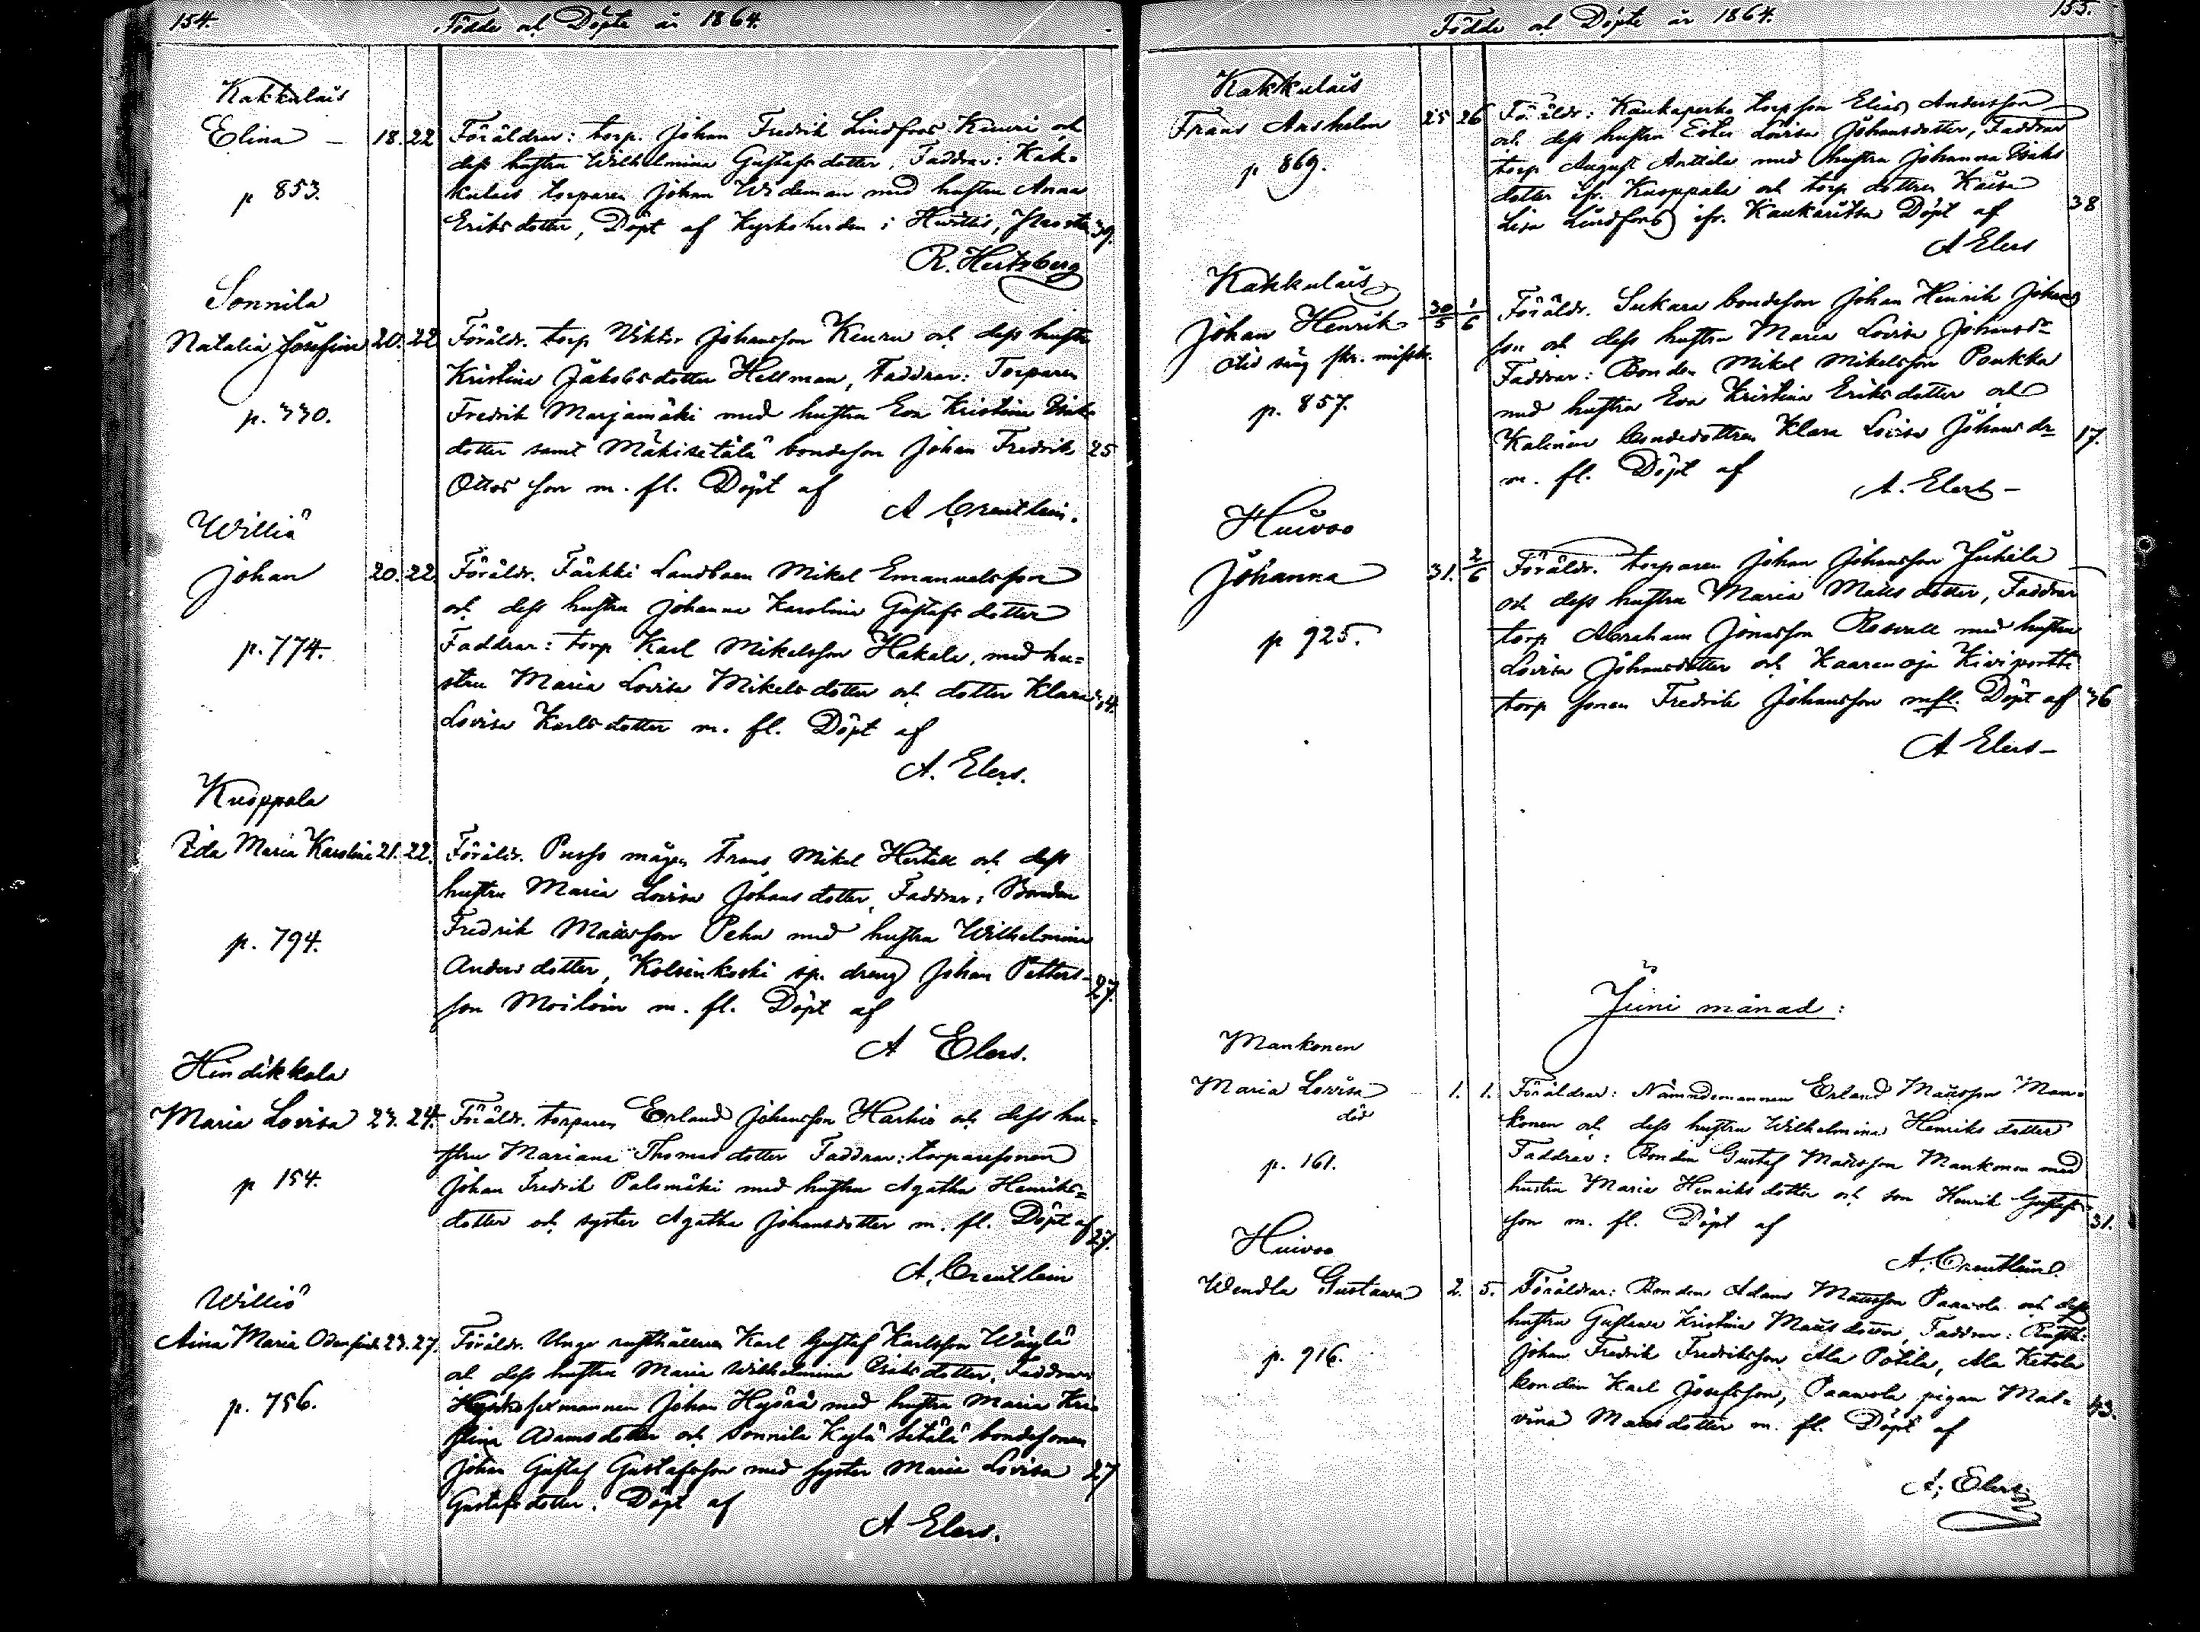 154. Födde och Döpte år 1864.
Kakkulais
Elina - 18. 22 Föräldrar: torp. Johan Fredrik Lindfors Kuuri och
dess hustru Wilhelmina Gustafsdotter, Faddrar: Kak-
p 853. kulais torparen Johan Wideman med hustru Anna
Eriksdotter, Döpt af Kyrkoherden i Huittis, Prosten 39.
R. Hertzberg
Sonnila
Natalia Josefina 20. 22 Föräldr. torp Viktor Johansson Keuru och dess hustru
Kristina Jakobsdotter Hellman, Faddrar: Torparen
p. 330. Fredrik Marjamäki med hustru Eva Kristina
dotter samt Mäkisetälä bondeson Johan Fredrik 25
Ottos son m. fl. Döpt af
A Creutlein.
Williö
Johan 20. 22. Föräldr. Färkki Landboen Mikel Emanuelsson
och dess hustru Johanna Karolina Gustafsdotter
p. 774. Faddrar: torp Karl Mikelsson Hakala, med hu-
stru Maria Lovisa Mikelsdotter och dotter Klara 34.
Lovisa Karlsdotter m. fl. Döpt af
A. Elers.
Kuoppala
Ida Maria Karolina 21. 22. Föräldr. Pusso mågen Frans Mikel Hertell och dess
hustru Maria Lovisa Johansdotter, Faddrar: Bonden
p. 794. Fredrik Mattsson Pehu med hustru Wilhelmina
Andersdotter, Kolsinkoski sp. dreng Johan Petters- 27.
son Moiloin m. fl. Döpt af
A Elers.
Hindikkala
Maria Lovisa 23. 24. Föräldr. torparen Erland Johansson Harhio och dess hu-
stru Mariana Thomasdotter Faddrar: torparesonen
p 154. Johan Fredrik Palomäki med hustru Agatha Henriks-
dotter och syster Agatha Johansdotter m. fl. Döpt af 27.
A. Creutlein
Williö
Aina Maria 23. 27. Föräldr. Unge rusthållaren Karl Gustaf Karlsson Wäylä
och dess hustru Maria Wilhelmina Eriksdotter, Faddrar
p. 756. sexmannen Johan Hyörä med hustru Maria Kri-
stina Adamsdotter och Sonnila Kylä Setälä bondesonen
Johan Gustaf Gustafsson med syster Maria Lovisa 27
Gustafsdotter. Döpt af
A Elers.
Födde och Döpte år 1864. 155.
Kakkulais
Frans Anshelm 25 26 Föräldr: Kaukaperko torpson Elias Andersson
och dess hustru Ester Lovisa Johansdotter, Faddrar
p 869. torp August Anttila med hustru Johanna
dotter ifr. Kuoppala och torp dottren Kaisa 38
Lisa Lindfors ifr. Kaukaritsa Döpt af
A Elers
Kakkulais
Johan Henrik 30/5 1/6 Föräldr. Sukara bondeson Johan Henrik Johans
son och dess hustru Maria Lovisa Johansdr
Faddrar: Bonden Mikel Mikelsson Poukka
p. 857. med hustru Eva Kristina Eriksdotter och
bondedottren Klara Lovisa Johansdr 17.
m. fl. Döpt af
A. Elers -
Huivoo
Johanna 31. 2/6 Föräldr. torparen Johan Johansson Juhila
och dess hustru Maria Mattsdotter, Faddrar
p 925. torp Abraham Jonasson Rosvall med hustru
Lovisa Johansdotter och Kaarenoja Kiviportti
torp sonen Fredrik Johansson mfl. Döpt af 36
A Elers -
Juni månad:
Mankonen
Maria Lovisa 1. 1. Föräldrar: Nämndemannen Erland Mattsson Man-
död konen och dess hustru Wilhelmina Henriksdotter
p. 161. Faddrar: Bonden Gustaf Mattsson Mankonen med
hustru Maria Henriksdotter och son Henrik Gustafs-
son m. fl. Döpt af 31.
A. Creutlein.
Huivoo
Wendla Gustawa 2. 5. Föräldrar: Bonden Adam Mattsson Paawola och dess
hustru Gustawa Kristina Mattsdotter, Faddrar: Rusth:
p. 916. Johan Fredrik Fredriksson Ala Potila, Ala Ketola
bonden Karl Josefsson, Paawola pigan Mal-
vina Mattsdotter m. fl. Döpt af 43.
A. Elers